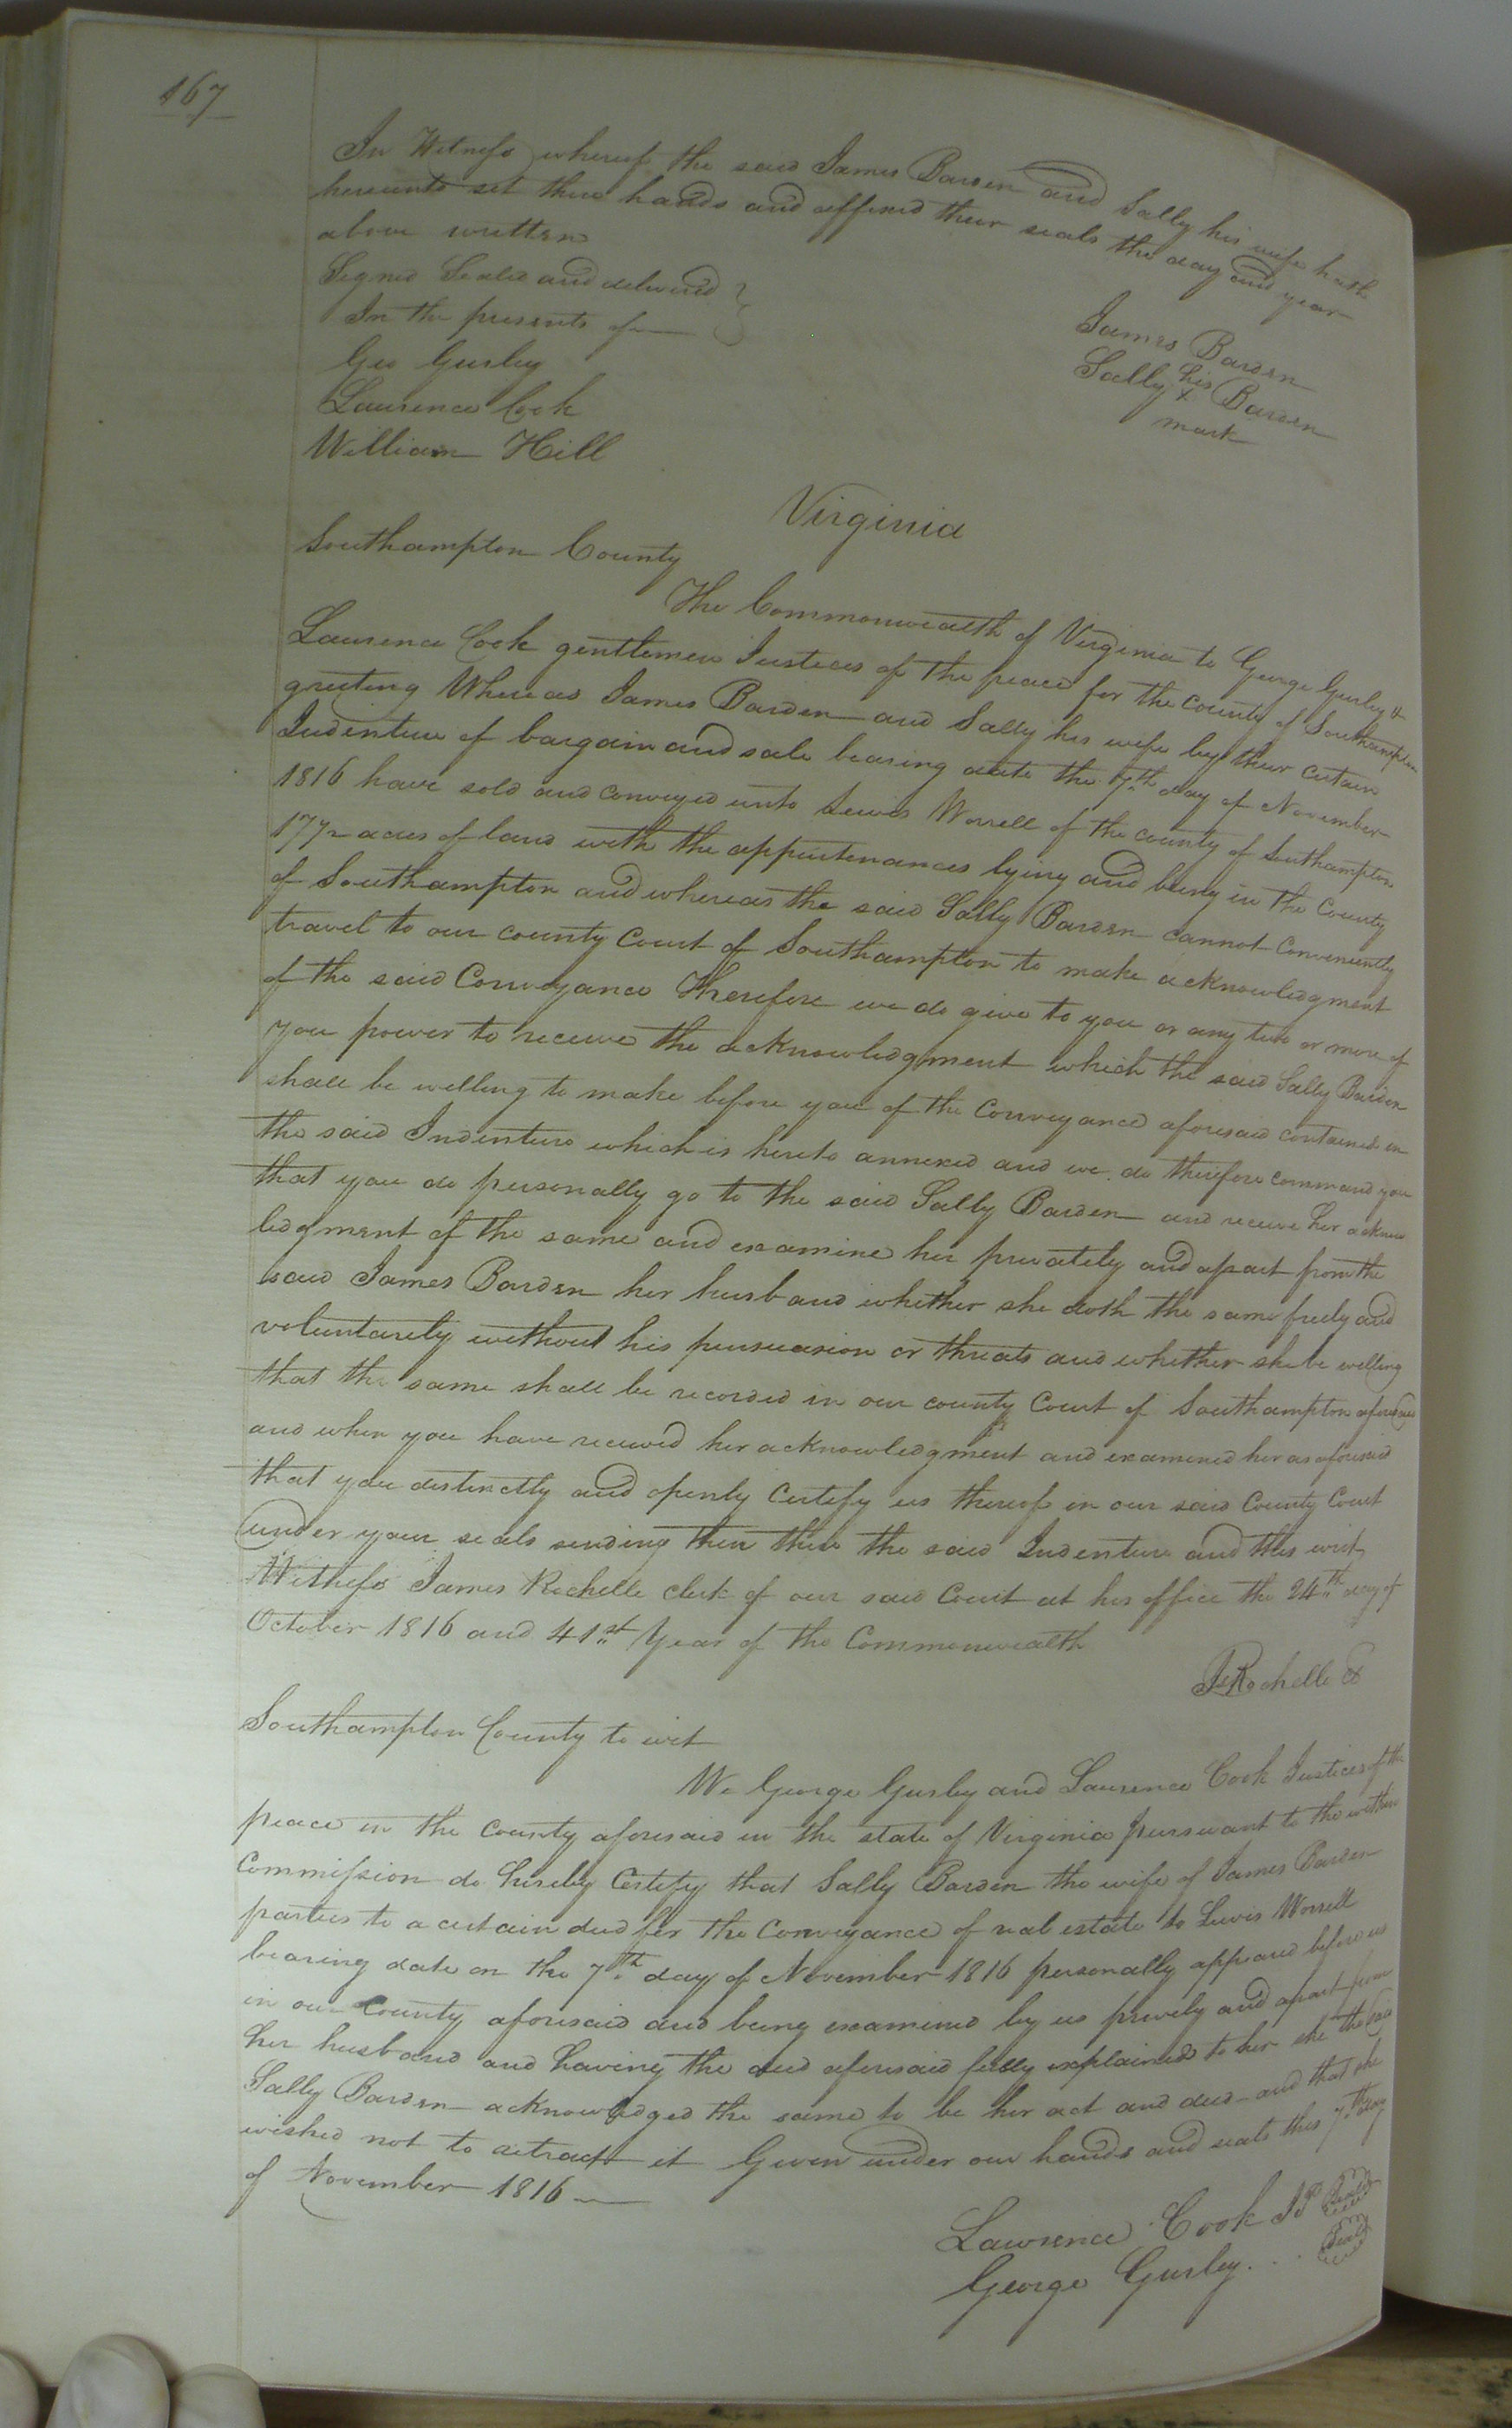 167
In Witness whereof the said James Barden and Sally his wife hath
hereunto set there hands and affixed their seals the day and year
above written
Signed Sealed and delivered }
In the presents of
Geo Gurley
Laurence Cook
William Hill
James Barden
his
Sally x Barden
mark
Virginia
Southampton County
The Commonwealth of Virginia to George Gurley &
Laurence Cook gentlemen Justices of the peace for the county of Southampton
greeting Whereas James Barden and Sally his wife by their certain
Indenture of bargain and sale bearing date the 7th day of November
1816 have sold and conveyed unto Lewis Worrell of the county of Southampton
acres of land with the appurtenances lying and being in the County
of Southampton and whereas the said Sally Barden cannot conveniently
travel to our county Court of Southampton to make acknowledgment
of the said Conveyance Therefore we do give to you or any two or more of
you power to receive the acknowledgment which the said Sally Barden
shall be willing to make before you of the Conveyance aforesaid contained in
the said Indenture which is hereto annexed and we do therefore command you
that you do personally go to the said Sally Barden and receive her acknow
ledgment of the same and examine her privately and apart from the
said James Barden her husband whether she doth the same freely and
voluntarily without his persuasion or threats and whether she be willing
that the same shall be recorded in our county Court of Southampton aforesaid
and when you have received her acknowledgment and examined her as aforesaid
that you distinctly and openly Certify us thereof in our said County Court
under your seals sending then there the said Indenture and this writ
Witness James Rochelle clerk of our said Court at his office the 24th day of
October 1816 and 41st Year of the Commonwealth
Js Rochelle
Southampton County to wit
We George Gurley and Laurence Cook Justices of the
peace in the County aforesaid in the state of Virginia pursuant to the within
Commission do hereby Certify that Sally Barden the wife of James Barden
parties to a certain deed for the Conveyance of real estate to Lewis Worrell
bearing date on the 7th day of November 1816 personally appeared before us
in our County aforesaid and being examined by us privily and apart from
her husband and having the deed aforesaid fully explained to her she the said
Sally Barden acknowledged the same to be her act and deed and that she
wished not to retract it Given under our hands and seals this 7th day
of November 1816
Lawrence Cook JP Seal
George Gurley . . . Seal